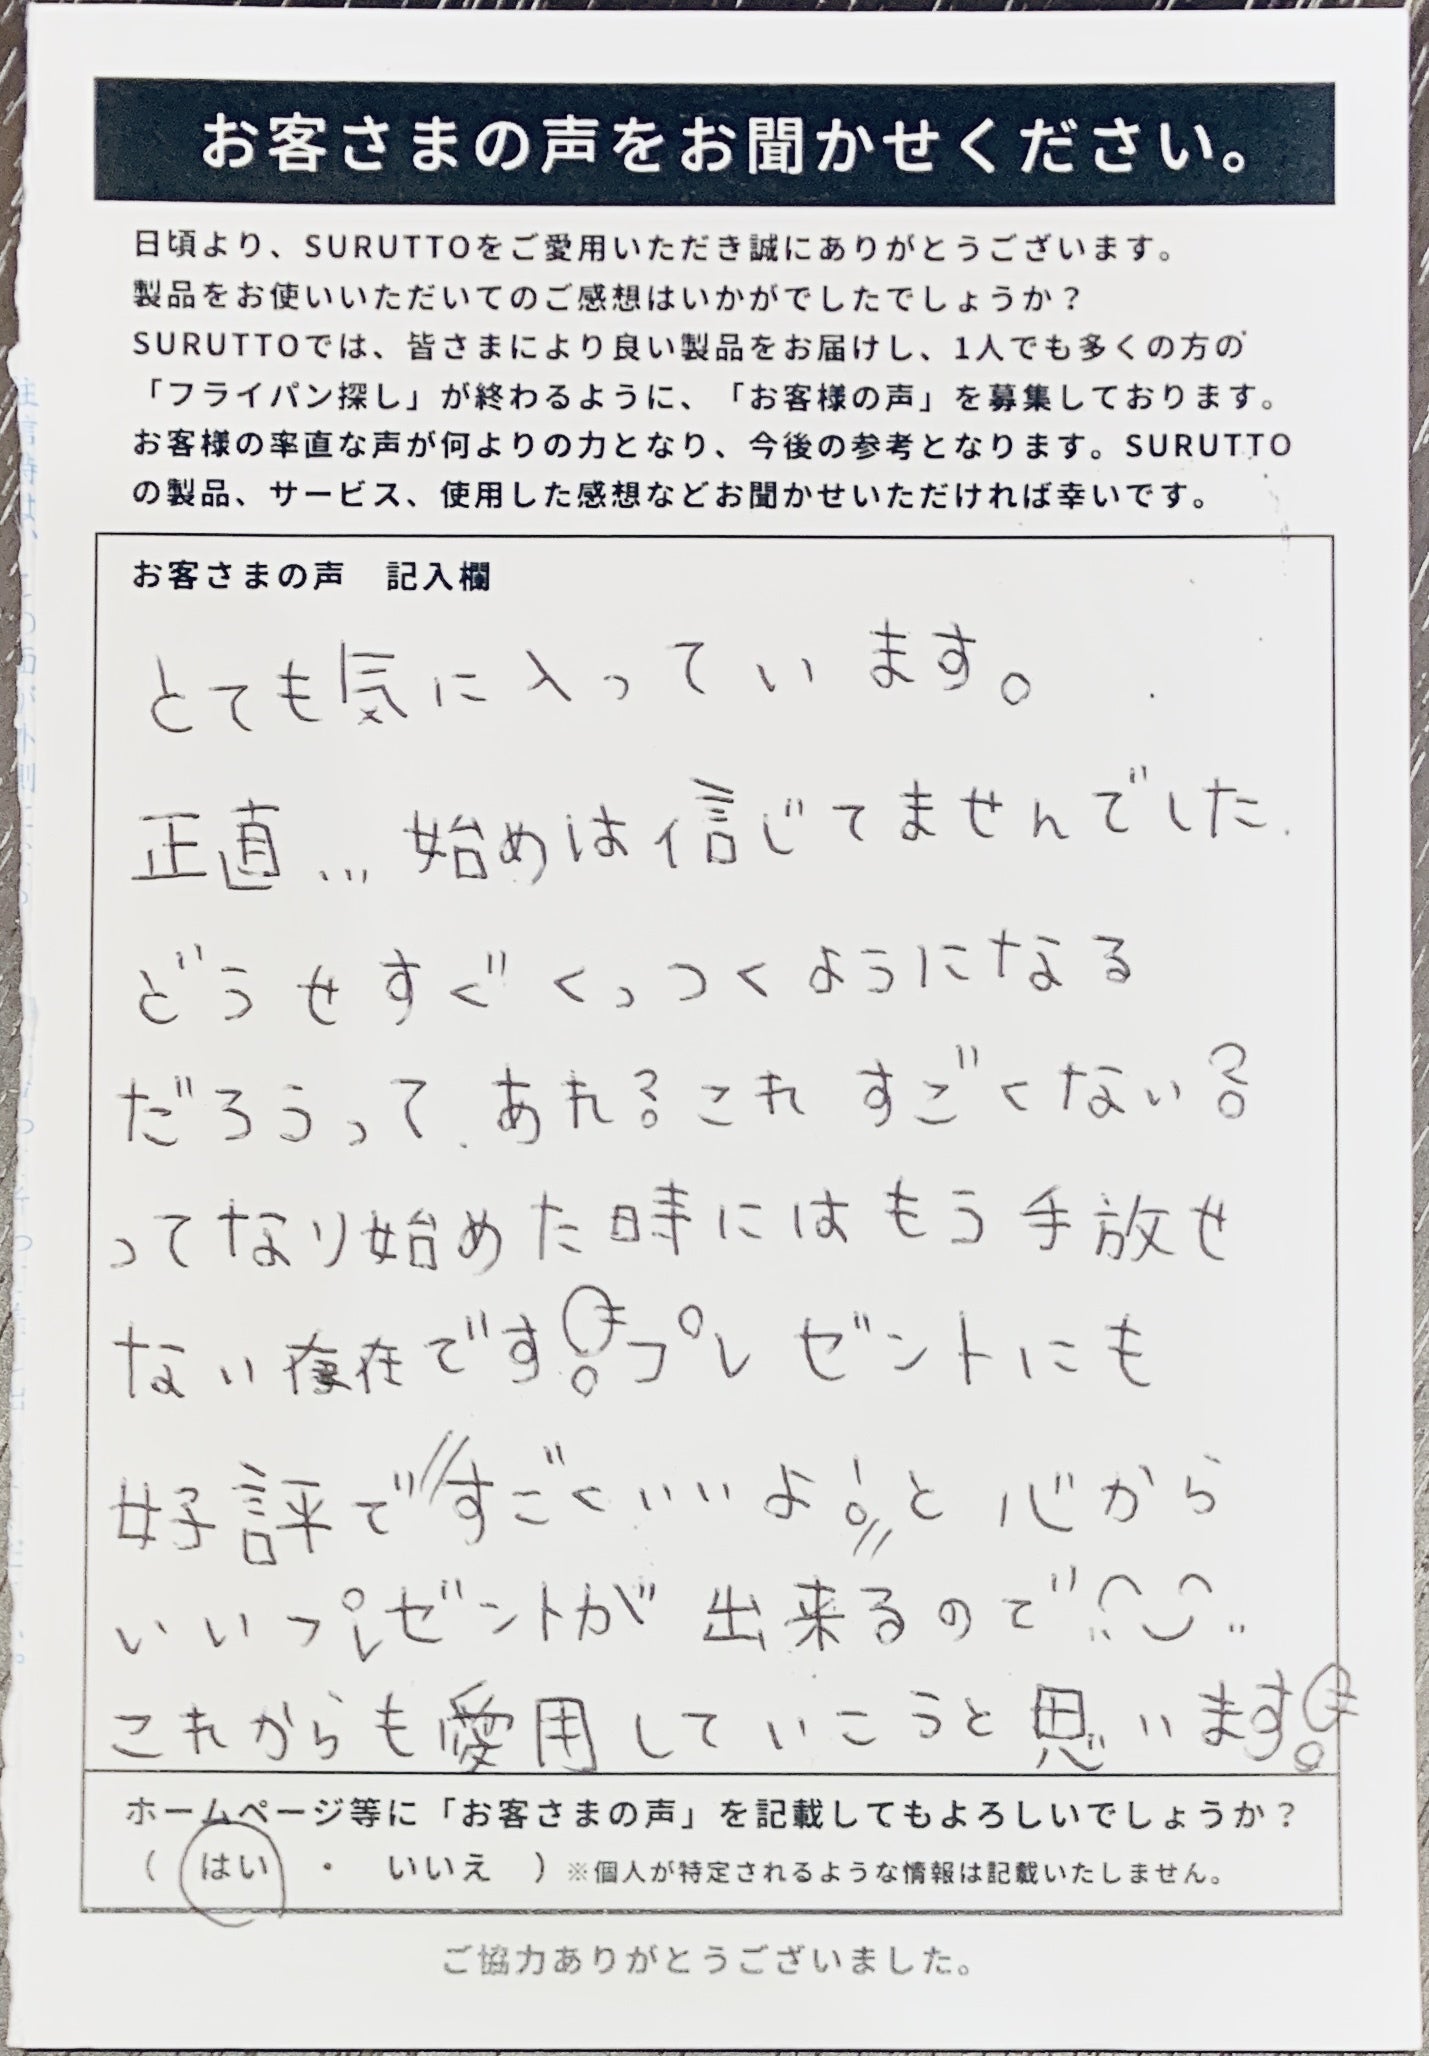 お客さまの声をお聞かせください。
日頃より、SURUTTOをご愛用いただき誠にありがとうございます。
製品をお使いいただいてのご感想はいかがでしたでしょうか？
SURUTTOでは、皆さまにより良い製品をお届けし、1人でも多くの方の
「フライパン探し」が終わるように、「お客様の声」を募集しております。
お客様の率直な声が何よりの力となり、今後の参考となります。SURUTTO
の製品、サービス、使用した感想などお聞かせいただければ幸いです。
お客さまの声 記入欄
とても気に入っています。
正直...始めは信じてませんでした.
どうせすぐくっつくようになる
だろうって.あれ?これすごくない?
ってなり始めた時にはもう手放せ
ない存在です!プレゼントにも
好評で〃すごくいいよ!〃と心から
いいプレゼントが出来るので
これからも愛用していこうと思います!
ホームページ等に「お客さまの声」を記載してもよろしいでしょうか？
（ はい ・ いいえ ）※個人が特定されるような情報は記載いたしません。
ご協力ありがとうございました。